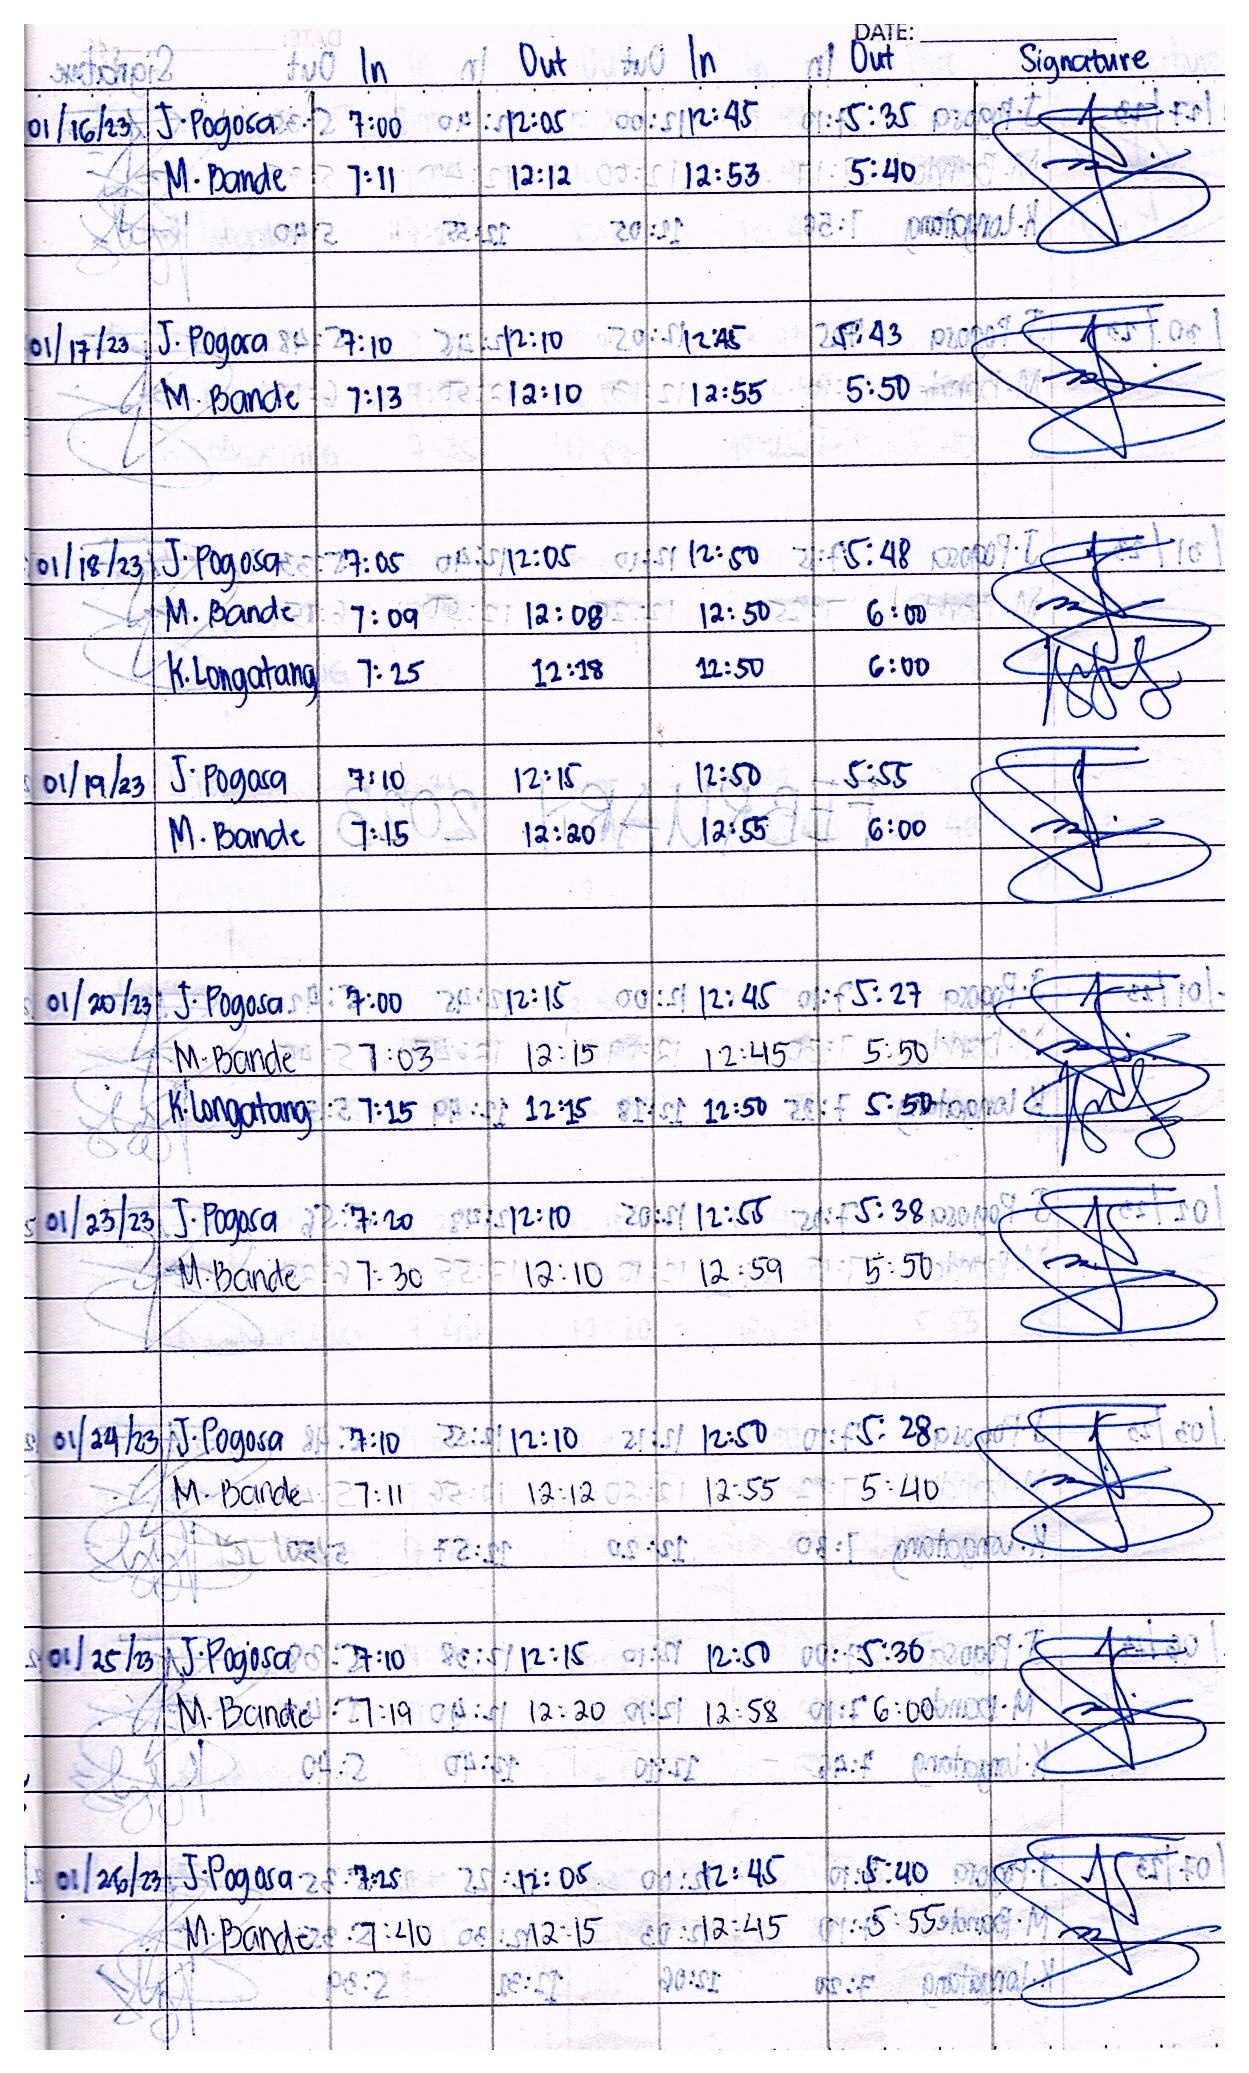 DATE:
In Out In Out Signature
01/16/23 J. Pogosa 7:00 12:05 12:45 5:35
M. Bande 7:11 12:12 12:53 5:40
01/17/23 J. Pogosa 7:10 12:10 12:45 5:43
M. Bande 7:13 12:10 12:55 5:50
01/18/23 J. Pogosa 7:05 12:05 12:50 5:48
M. Bande 7:09 12:08 12:50 6:00
K. Longatang 7:25 12:18 12:50 6:00
01/19/23 J. Pogosa 7:10 12:15 12:50 5:55
M. Bande 7:15 12:20 12:55 6:00
01/20/23 J. Pogosa 7:00 12:15 12:45 5:27
M. Bande 7:03 12:15 12:45 5:50
K. Longatang 7:15 12:15 12:50 5:50
01/23/23 J. Pogosa 7:20 12:10 12:55 5:38
M. Bande 7:30 12:10 12:59 5:50
01/24/23 J. Pogosa 7:10 12:10 12:50 5:28
M. Bande 7:11 12:12 12:55 5:40
01/25/23 J. Pogosa 7:10 12:15 12:50 5:30
M. Bande 7:19 12:20 12:58 6:00
01/26/23 J. Pogosa 7:25 12:05 12:45 5:40
M. Bande 7:40 12:15 12:45 5:55